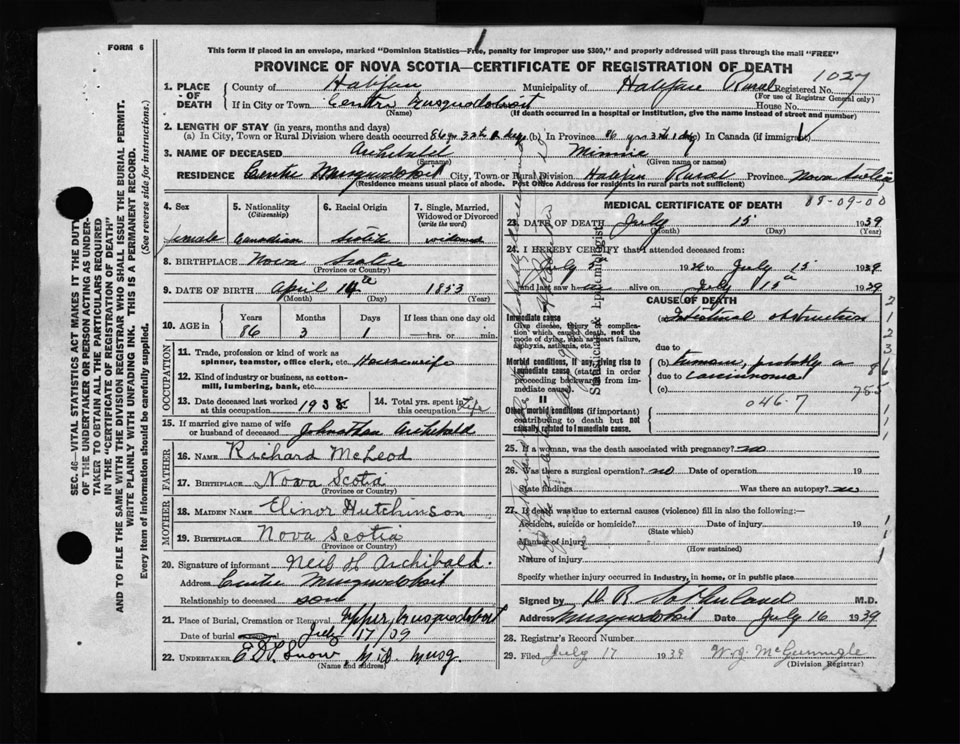 FORM 6
This form if placed in an envelope, marked "Dominion Statistics—Free, penalty for improper use $300," and properly addressed will pass through the mail "FREE"
PROVINCE OF NOVA SCOTIA—CERTIFICATE OF REGISTRATION OF DEATH
1027
1. PLACE OF DEATH County of Halifax Municipality of Halifax Rural Registered No.
(For use of Registrar General only)
If in City or Town Centre Musquodoboit House No.
(Name) (If death occurred in a hospital or institution, give the name instead of street and number)
2. LENGTH OF STAY (in years, months and days)
(a) In City, Town or Rural Division where death occurred 86 yr 3 mth 1 day (b) In Province 86 yrs 3 mth 1 day (c) In Canada (if immigrant)
3. NAME OF DECEASED Archibald Minnie
(Surname) (Given name or names)
RESIDENCE Centre Musquodoboit City, Town or Rural Division Halifax Rural Province Nova Scotia
(Residence means usual place of abode. Post Office Address for residents in rural parts not sufficient)
4. Sex 5. Nationality (Citizenship) 6. Racial Origin 7. Single, Married, Widowed or Divorced (write the word)
female Canadian Scotch widowed
8. BIRTHPLACE Nova Scotia
(Province or Country)
9. DATE OF BIRTH April 14th 1853
(Month) (Day) (Year)
10. AGE in Years Months Days If less than one day old
86 3 1 hrs. or min.
OCCUPATION
11. Trade, profession or kind of work as spinner, teamster, office clerk, etc. Housewife
12. Kind of industry or business, as cotton-mill, lumbering, bank, etc.
13. Date deceased last worked at this occupation 1938 14. Total yrs. spent in this occupation Life
15. If married give name of wife or husband of deceased Johnathan Archibald
FATHER
16. NAME Richard McLeod
17. BIRTHPLACE Nova Scotia
(Province or Country)
MOTHER
18. MAIDEN NAME Elinor Hutchinson
19. BIRTHPLACE Nova Scotia
(Province or Country)
20. Signature of informant Neil H Archibald.
Address Centre Musquodoboit
Relationship to deceased son
21. Place of Burial, Cremation or Removal Upper Musquodoboit
Date of burial July 17/39
22. UNDERTAKER Snow, Mid. Musq.
(Name and address)
MEDICAL CERTIFICATE OF DEATH
88-09-00
23. DATE OF DEATH July 15 1939
(Month) (Day) (Year)
24. I HEREBY CERTIFY that I attended deceased from:
July 1939 to July 15 1939
and last saw h alive on July 15 1939
CAUSE OF DEATH
Immediate cause
Give disease, injury or complication which caused death, not the mode of dying, such as heart failure, asphyxia, asthenia, etc.
(a) Intestinal obstruction
due to
Morbid conditions, if any, giving rise to immediate cause (stated in order proceeding backwards from immediate cause).
(b) tumour, probably a
due to carcinoma
(c)
II
046.7
Other morbid conditions (if important) contributing to death but not causally related to immediate cause.
Statistician & Epidemiologist
25. If a woman, was the death associated with pregnancy? no
26. Was there a surgical operation? no Date of operation 19
State findings Was there an autopsy? no
27. If death was due to external causes (violence) fill in also the following:—
Accident, suicide or homicide? Date of injury 19
(State which)
Manner of injury
(How sustained)
Nature of injury
Specify whether injury occurred in industry, in home, or in public place
Signed by H B Sutherland M.D.
Address Musquodoboit Date July 16 1939
28. Registrar's Record Number
29. Filed July 17 1939 W.J. McGunnigle
(Division Registrar)
SEC. 46—VITAL STATISTICS ACT MAKES IT THE DUTY
OF THE UNDERTAKER OR PERSON ACTING AS UNDER-
TAKER TO OBTAIN ALL THE PARTICULARS REQUIRED
IN THE "CERTIFICATE OF REGISTRATION OF DEATH"
AND TO FILE THE SAME WITH THE DIVISION REGISTRAR WHO SHALL ISSUE THE BURIAL PERMIT.
WRITE PLAINLY WITH UNFADING INK. THIS IS A PERMANENT RECORD.
Every item of information should be carefully supplied. (See reverse side for instructions.)